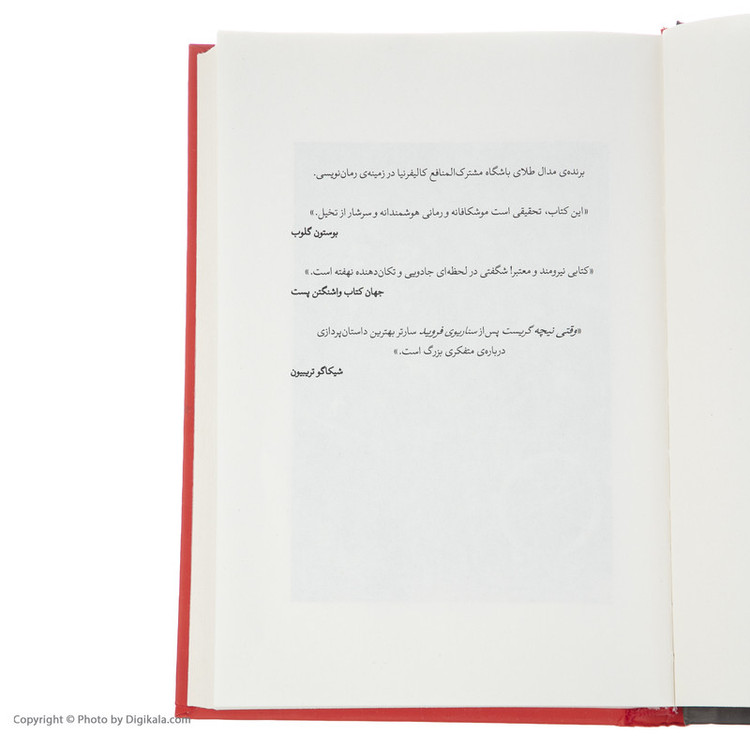 برنده‌ی مدال طلای باشگاه مشترک‌المنافع کالیفرنیا در زمینه‌ی رمان‌نویسی.
«این کتاب، تحقیقی است موشکافانه و رمانی هوشمندانه و سرشار از تخیل.»
بوستون گلوب
«کتابی نیرومند و معتبر! شگفتی در لحظه‌ای جادویی و تکان‌دهنده نهفته است.»
جهان کتاب واشنگتن پست
«وقتی نیچه گریست پس از سناریوی فروید سارتر بهترین داستان‌پردازی
درباره‌ی متفکری بزرگ است.»
شیکاگو تریبیون
Copyright © Photo by Digikala.com